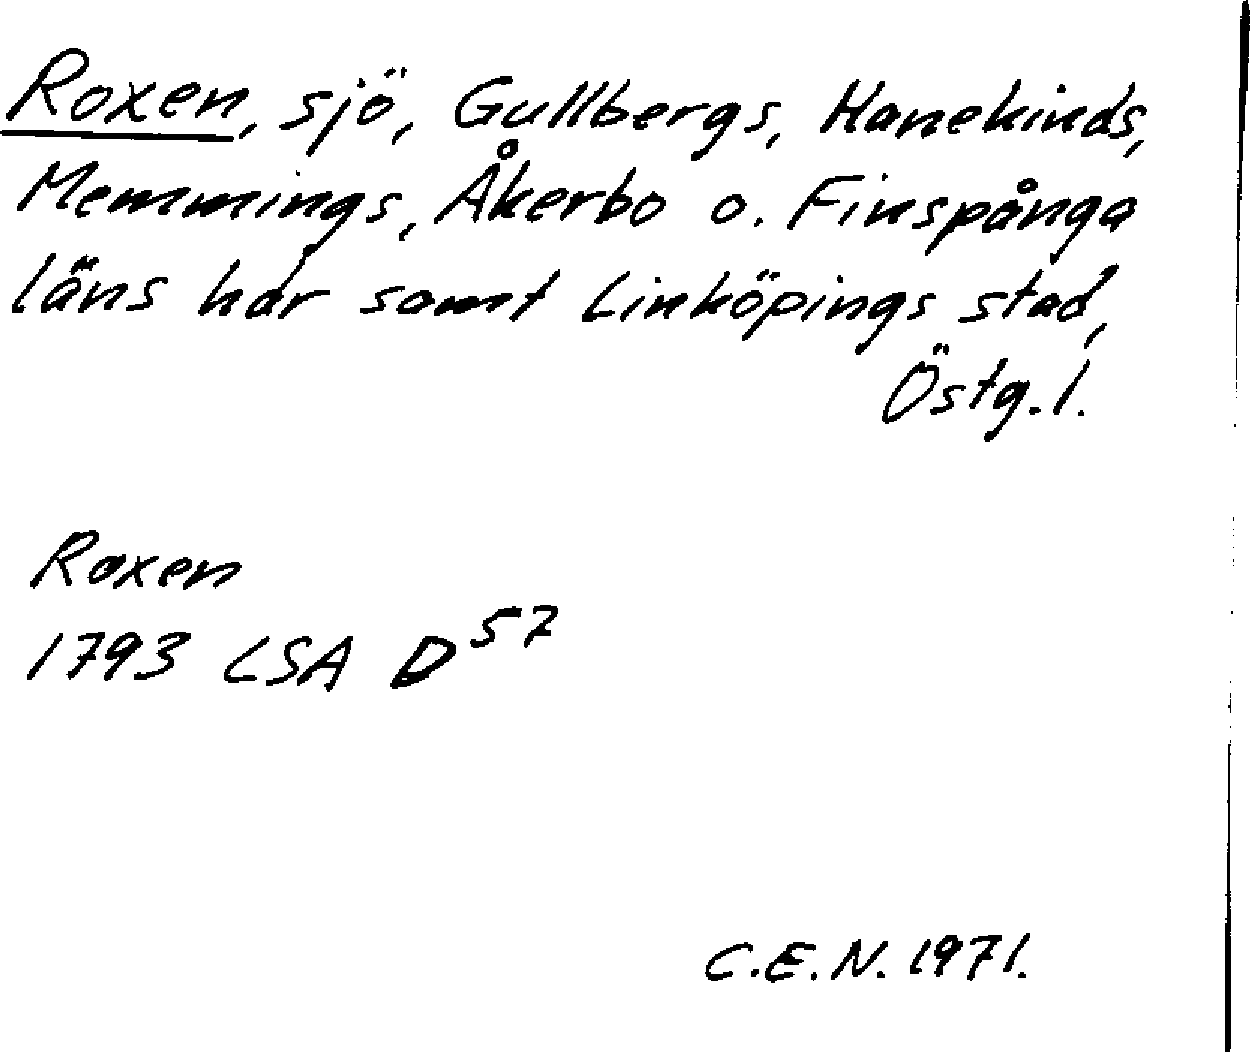 Roxen, sjö, Gullbergs, Hanekinds,
Memmings, Åkerbo o. Finspånga
läns här samt Linköpings stad,
Östg. l.
Roxen
1793 LSA D57
C.E.N. 1971.